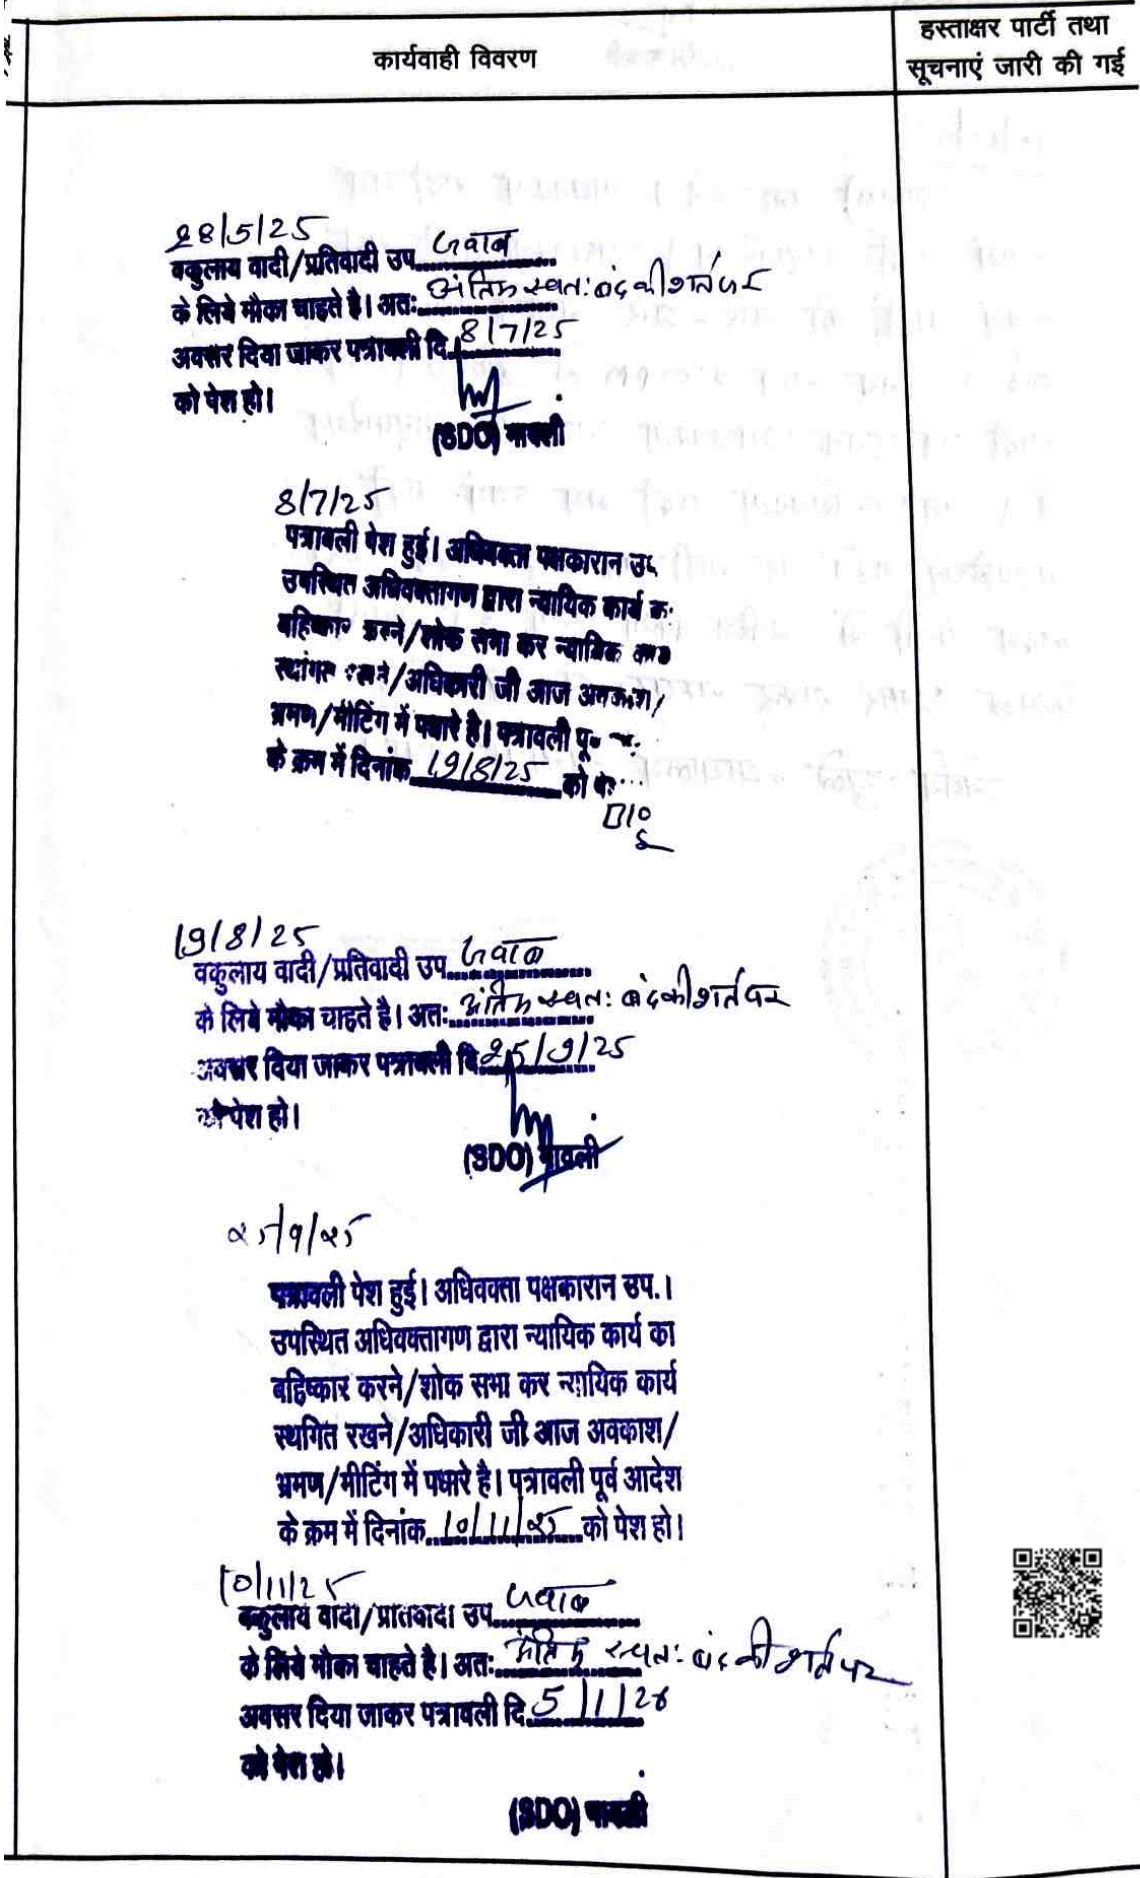 कार्यवाही विवरण
हस्ताक्षर पार्टी तथा
सूचनाएं जारी की गई
28/5/25
वकुलाय वादी/प्रतिवादी उप. जवाब
के लिये मौका चाहते है। अतः अंतिम स्वतः बंद की शर्त पर
अवसर दिया जाकर पत्रावली दि. 8/7/25
को पेश हो।
(SDO) मावली
8/7/25
पत्रावली पेश हुई। अधिवक्ता पक्षकारान उप
उपस्थित अधिवक्तागण द्वारा न्यायिक कार्य का
बहिष्कार करने/शोक सभा कर न्यायिक कार्य
स्थगित रखने/अधिकारी जी आज अवकाश/
भ्रमण/मीटिंग में पधारे है। पत्रावली
के क्रम में दिनांक 19/8/25 को
19/8/25
वकुलाय वादी/प्रतिवादी उप. जवाब
के लिये मौका चाहते है। अतः अंतिम स्वतः बंद की शर्त पर
अवसर दिया जाकर पत्रावली दि. 25/9/25
को पेश हो।
(SDO) मावली
25/9/25
पत्रावली पेश हुई। अधिवक्ता पक्षकारान उप.।
उपस्थित अधिवक्तागण द्वारा न्यायिक कार्य का
बहिष्कार करने/शोक सभा कर न्यायिक कार्य
स्थगित रखने/अधिकारी जी आज अवकाश/
भ्रमण/मीटिंग में पधारे है। पत्रावली पूर्व आदेश
के क्रम में दिनांक 10/11/25 को पेश हो।
10/11/25
वकुलाय वादी/प्रतिवादी उप. जवाब
के लिये मौका चाहते है। अतः अंतिम स्वतः बंद की शर्त पर
अवसर दिया जाकर पत्रावली दि. 5/1/26
को पेश हो।
(SDO) मावली